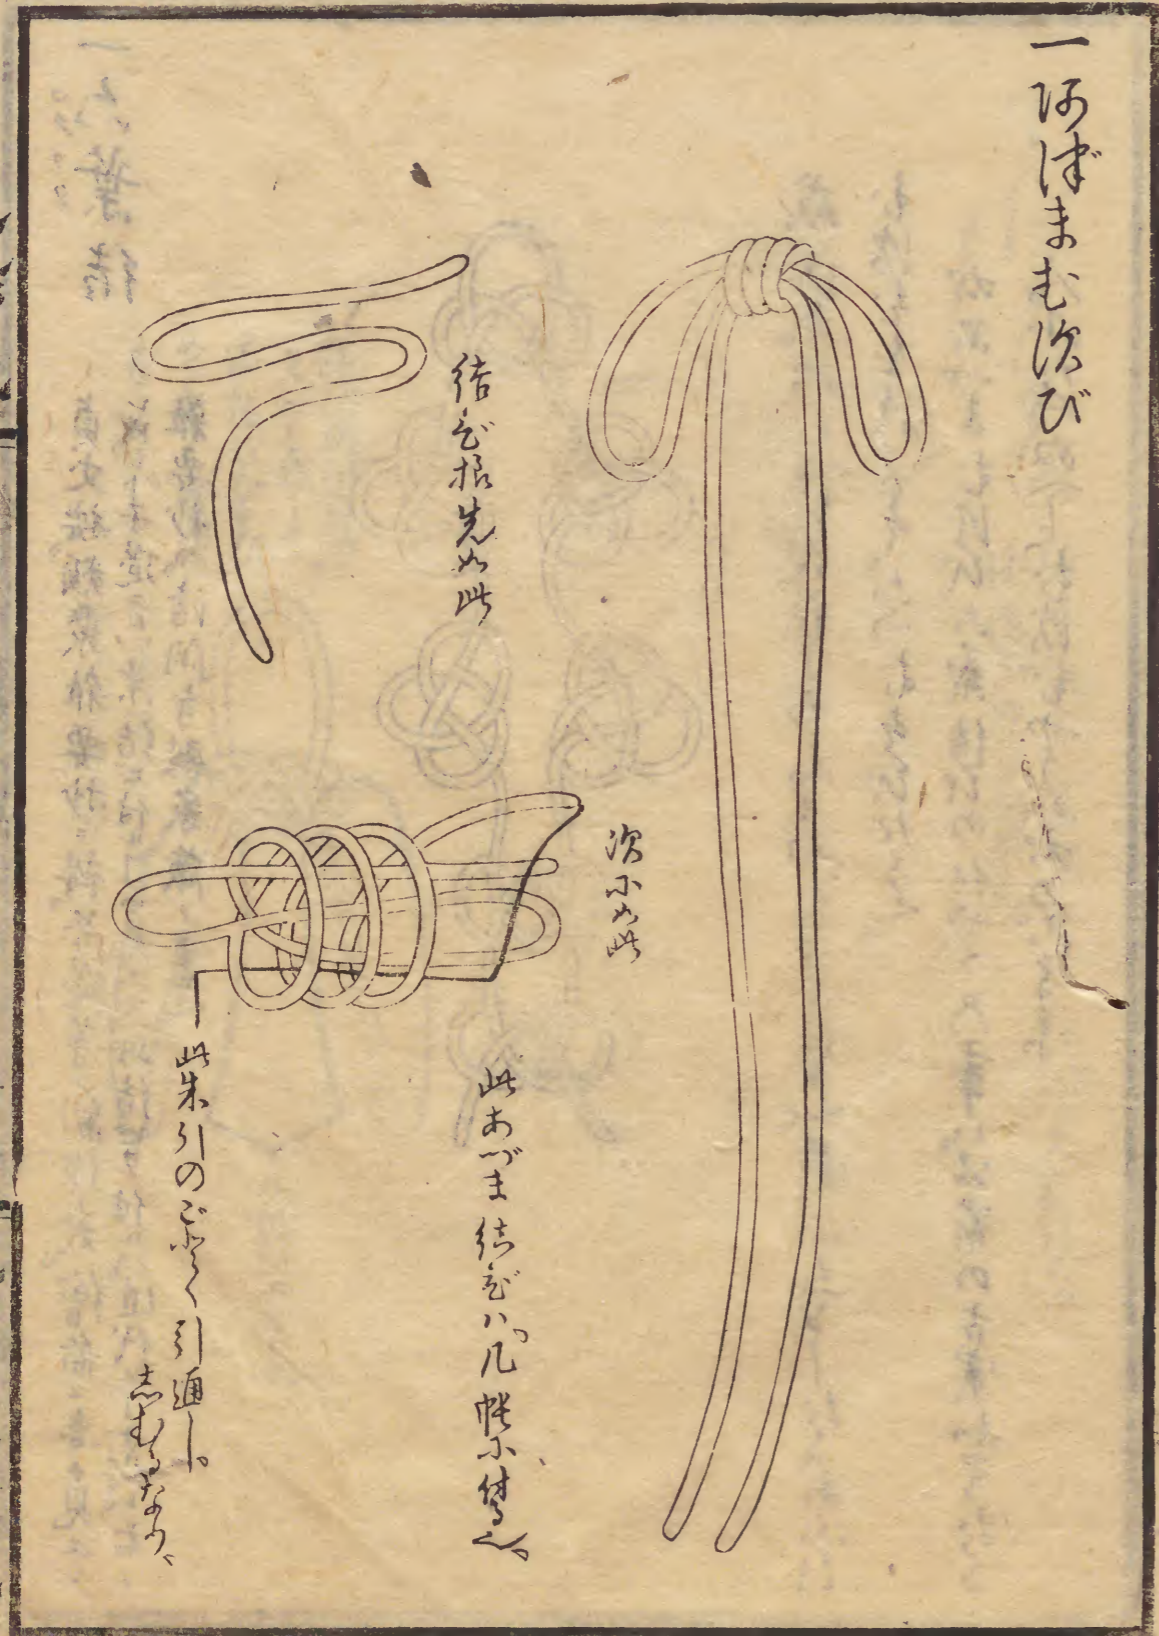 一阿づまむ須び
結び様先如此
次に如此
此あづま結びハ几帳に付る也
此朱引のごとく引通し
志むるなり